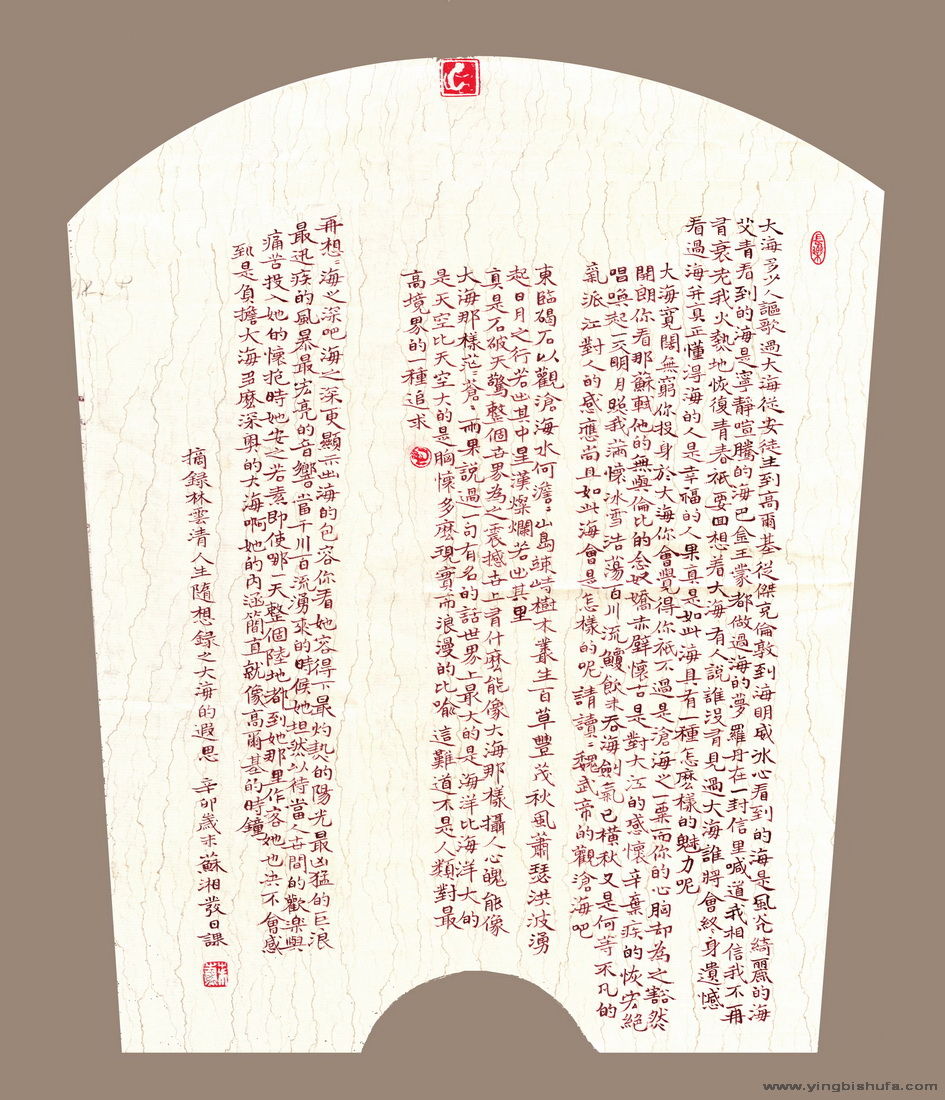 大海多少人謳歌過大海從安徒生到高爾基從傑克倫敦到海明威冰心看到的海是風光綺麗的海
艾青看到的海是寧靜喧騰的海巴金王蒙都做過海的夢羅丹在一封信里喊道我相信我不再
有衰老我火熱地恢復青春祇要回想着大海有人說誰沒有見過大海誰將會終身遺憾
看過海并真正懂得海的人是幸福的人果真是如此海具有一種怎麼樣的魅力呢
大海寬闊無窮你投身於大海你會覺得你祇不過是滄海之一粟而你的心胸却為之豁然
開朗你看那蘇軾他的無與倫比的念奴嬌赤壁懷古是對大江的感懷辛棄疾的恢宏絕
唱喚起一天明月照我滿懷冰雪浩蕩百川流鯨飲未吞海劍氣已橫秋又是何等不凡的
氣派江對人的感應尚且如此海會是怎樣的呢請讀讀魏武帝的觀滄海吧
東臨碣石以觀滄海水何澹澹山島竦峙樹木叢生百草豐茂秋風蕭瑟洪波湧
起日月之行若出其中星漢燦爛若出其里
真是石破天驚整個世界為之震撼世上有什麼能像大海那樣攝人心魄能像
大海那樣茫茫蒼蒼雨果說過一句有名的話世界上最大的是海洋比海洋大的
是天空比天空大的是胸懷多麼現實而浪漫的比喻這難道不是人類對最
高境界的一種追求
再想想海之深吧海之深更顯示出海的包容你看她容得下最灼熱的陽光最凶猛的巨浪
最迅疾的風暴最宏亮的音響當千川百流湧來的時候她坦然以待當人世間的歡樂與
痛苦投入她的懷抱時她安之若素即使哪一天整個陸地都到她那里作客她也決不會感
到是負擔大海多麼深奧的大海啊她的內涵簡直就像高爾基的時鐘
摘錄林雲清人生隨想錄之大海的遐思 辛卯歲末蘇湘發日課
www.yingbishufa.com